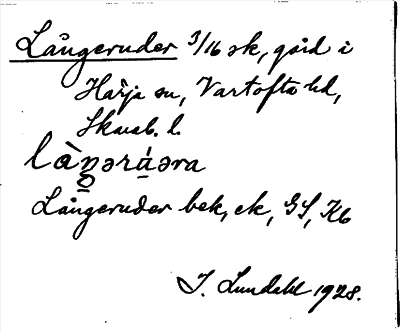 Långeruder 3/16 sk, gård i
Härja sn, Vartofta hd,
Skarab. l.
Långeruder bek, ek, GS, Kb
I. Lundahl 1928.